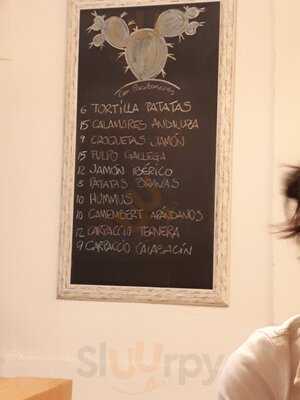 6 TORTILLA PATATAS
15 CALAMARES ANDALUZA
9 CROQUETAS JAMÓN
15 PULPO GALLEGA
12 JAMÓN IBÉRICO
8 PATATAS BRAVAS
10 HUMMUS
10 CAMEMBERT ARÁNDANOS
12 CARPACCIO TERNERA
9 CARPACCIO CALABACÍN
Sluurpy